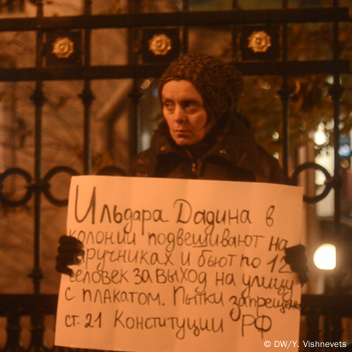 Ильдара Дадина в
колонии подвешивают на
наручниках и бьют по 12
человек за выход на улицу
с плакатом. Пытки запрещены
ст. 21 Конституции РФ
© DW/Y. Vishnevets